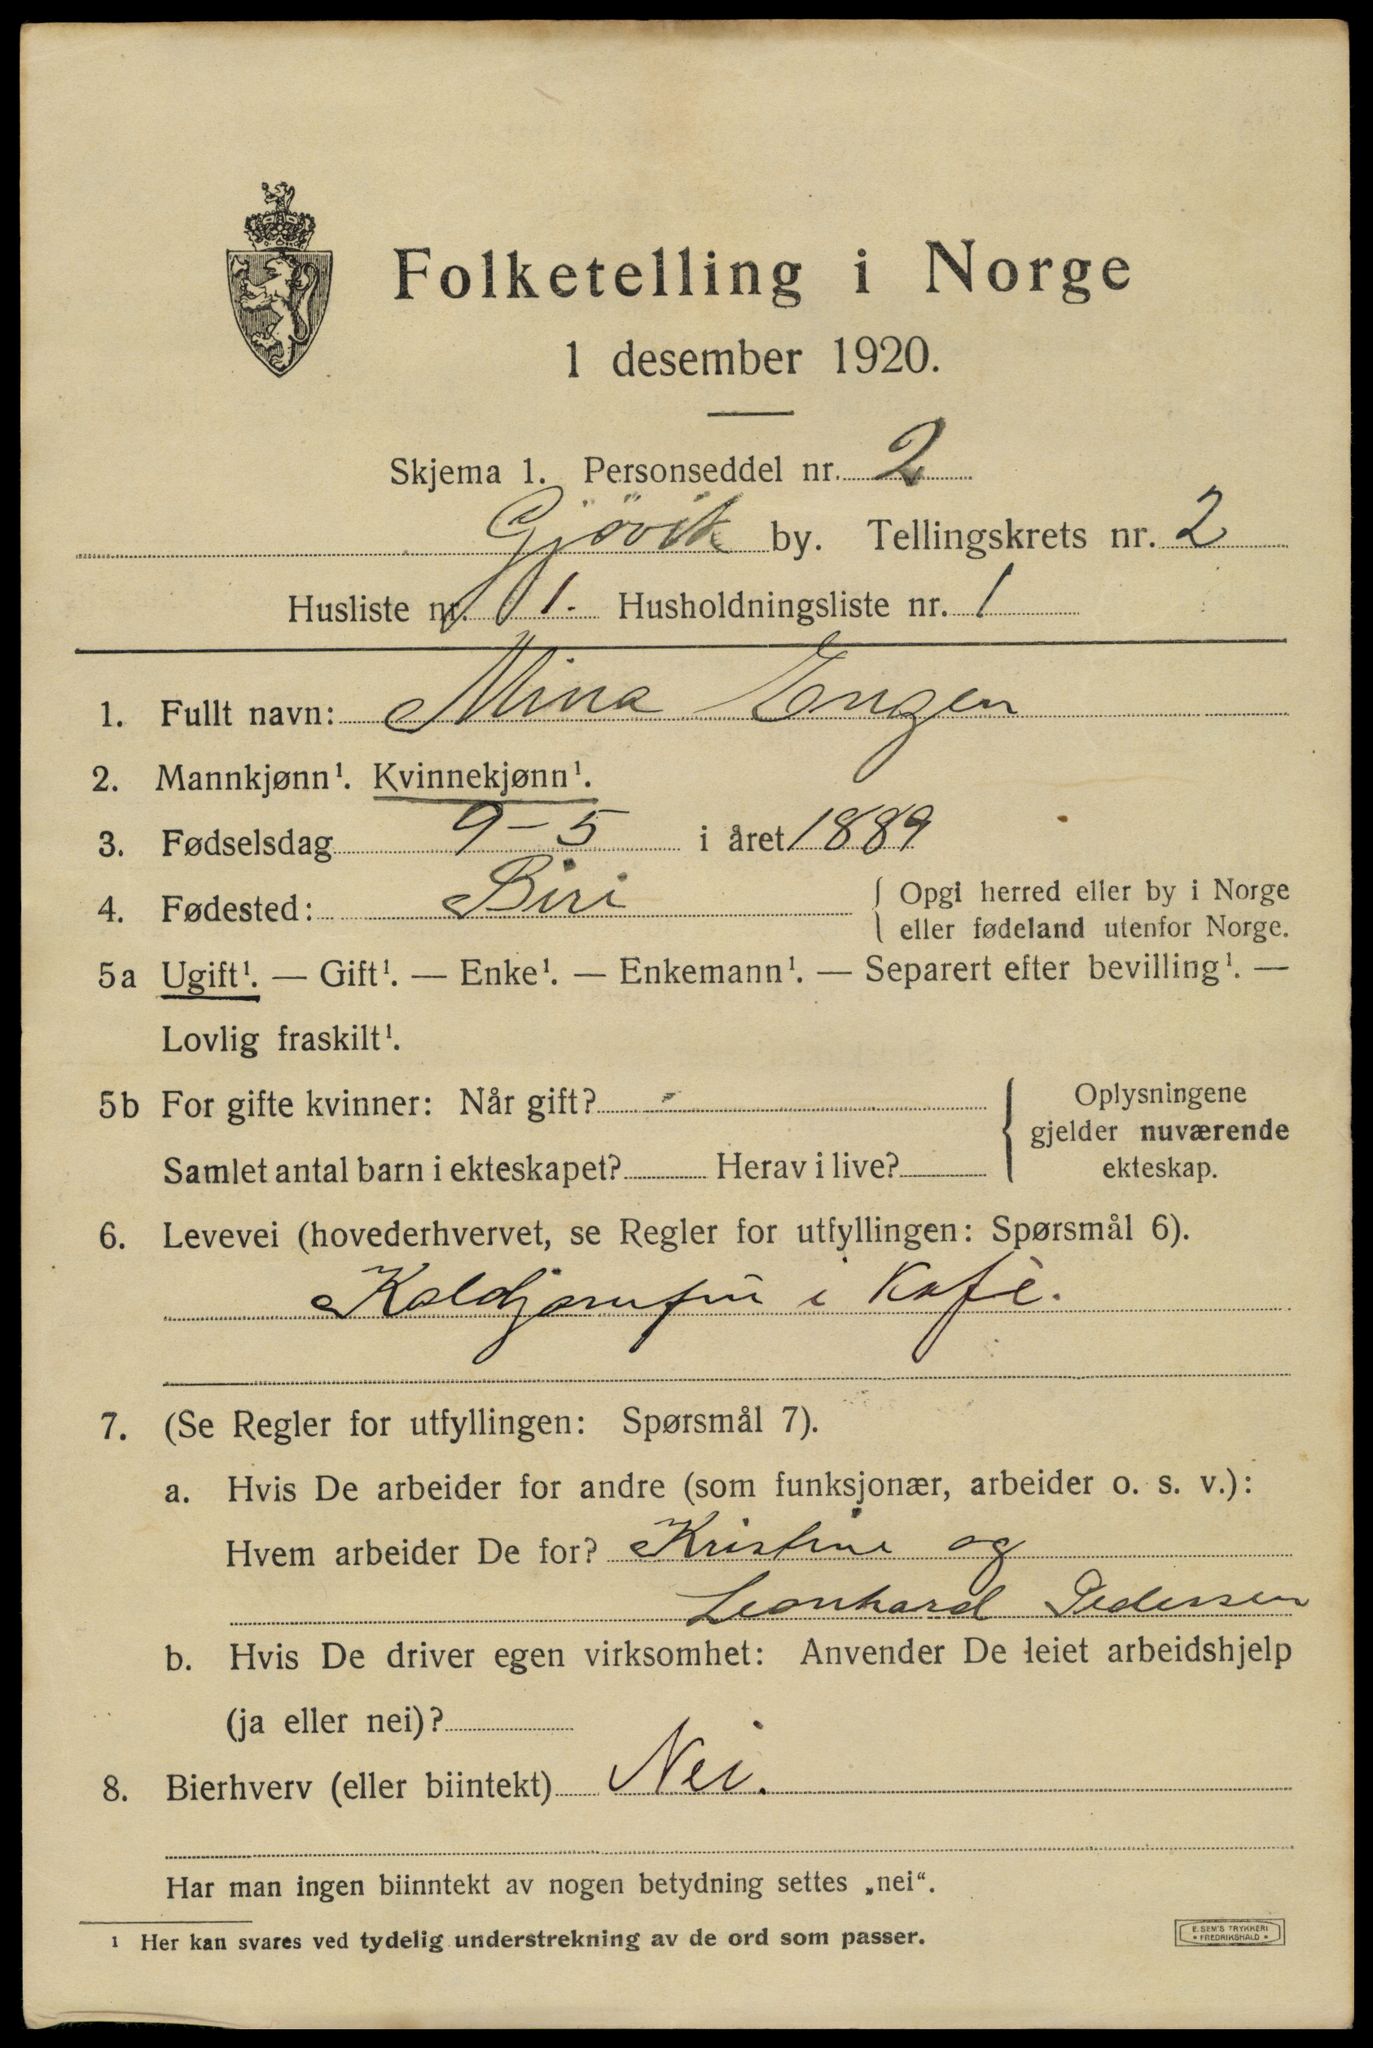 Folketelling i Norge
1 desember 1920.
Skjema 1. Personseddel nr. 2
Gjövik by. Tellingskrets nr. 2
Husliste nr. 1. Husholdningsliste nr. 1
1. Fullt navn: Mina Engen
2. Mannkjønn¹. Kvinnekjønn¹.
3. Fødselsdag 9-5 i året 1889
4. Fødested: Biri { Opgi herred eller by i Norge
eller fødeland utenfor Norge.
5a Ugift¹. — Gift¹. — Enke¹. — Enkemann¹. — Separert efter bevilling¹. —
Lovlig fraskilt¹.
5b For gifte kvinner: Når gift?
Samlet antal barn i ekteskapet? Herav i live?
{ Oplysningene
gjelder nuværende
ekteskap.
6. Levevei (hovederhvervet, se Regler for utfyllingen: Spørsmål 6).
Koldjomfru i Kafè.
7. (Se Regler for utfyllingen: Spørsmål 7).
a. Hvis De arbeider for andre (som funksjonær, arbeider o. s. v.):
Hvem arbeider De for? Kristine og
Leonhard Pedersen
b. Hvis De driver egen virksomhet: Anvender De leiet arbeidshjelp
(ja eller nei)?
8. Bierhverv (eller biintekt) Nei.
Har man ingen biinntekt av nogen betydning settes „nei“.
¹ Her kan svares ved tydelig understrekning av de ord som passer.
E. SEM'S TRYKKERI
* FREDRIKSHALD *